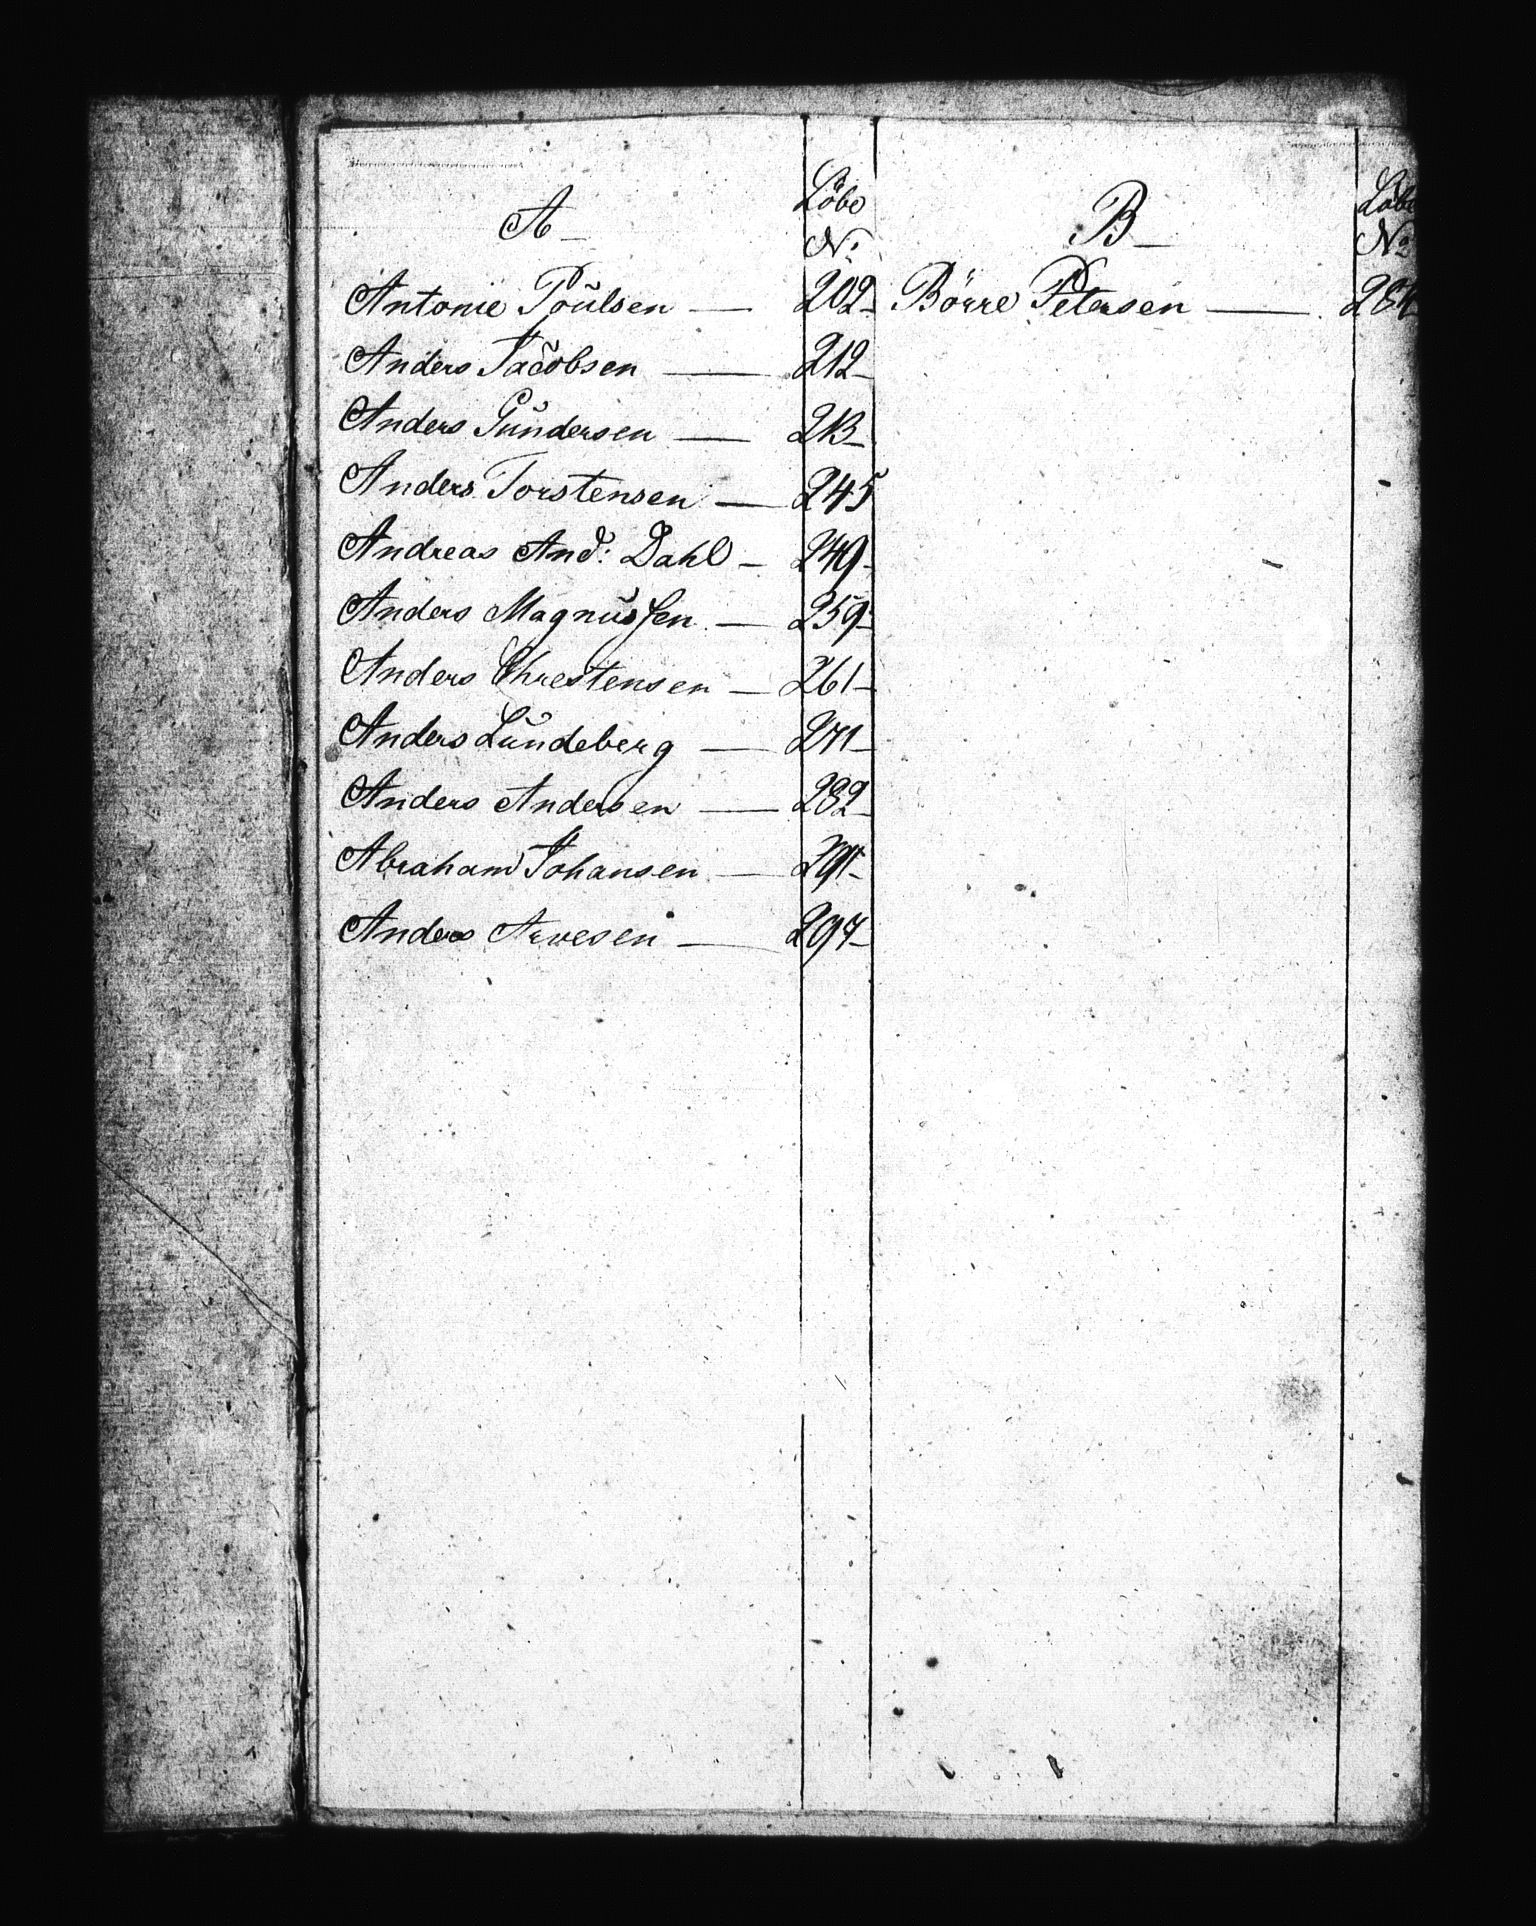 A
Löbe
No
Antonie Poulsen — 202
Anders Jacobsen — 212
Anders Gundersen — 213
Anders Torstensen — 245
Andreas And: Dahl — 249
Anders Magnussen — 259
Anders Chrestensen — 261
Anders Lundeberg — 271
Anders Andersen — 282
Abraham Johansen —
Anders Arvesen — 297
B
Löbe
No
Börre Petersen —